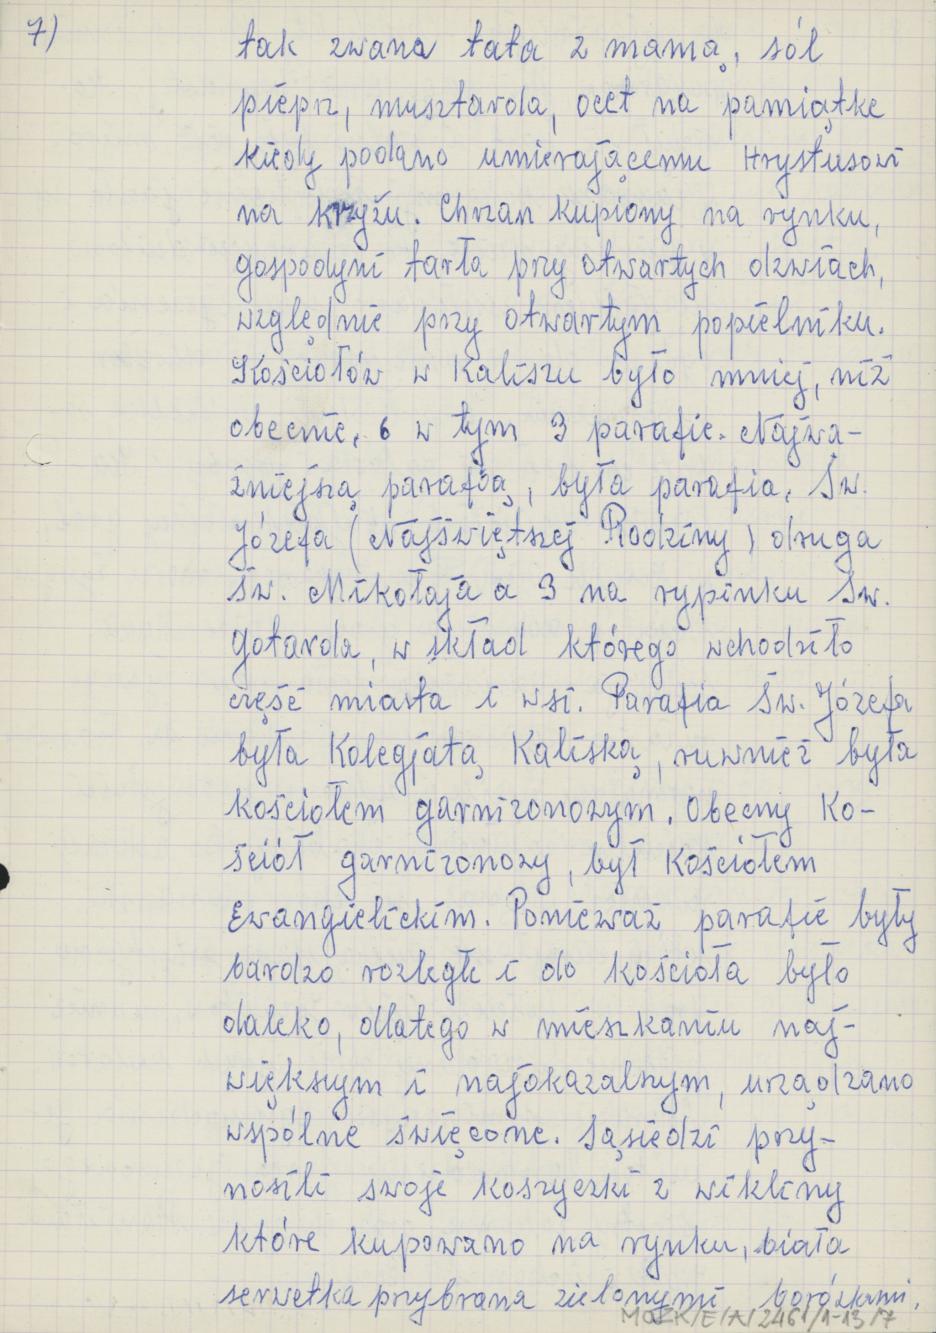 7)
tak zwana tata z mamą, sól
pieprz, musztarda, ocet na pamiątke
kiedy podano umierającemu Hrystusowi
na krzyżu. Chrzan kupiony na rynku,
gospodyni tarła przy otwartych dzwiach,
względnie przy otwartym popielniku.
Kościołów w Kaliszu było mniej, niż
obecnie, 6 w tym 3 parafie. Najwa-
żniejszą parafią, była parafia, Św.
Józefa (Najświętszej Rodziny) druga
Św. Mikołaja a 3 na rypinku Św.
Gotarda, w skład którego wchodziło
część miasta i wsi. Parafia Św. Józefa
była Kolegjatą Kaliską, ruwnież była
kościołem garnizonowym. Obecny Ko-
ściół garnizonowy, był Kościołem
Ewangielickim. Ponieważ parafie były
bardzo rozległe i do kościoła było
daleko, dlatego w mieszkaniu naj-
większym i najokazalszym, urządzano
wspólne święcone. Sąsiedzi przy-
nosili swoje koszyczki z wikliny
które kupowano na rynku, biała
serwetka przybrana zielonymi borózkami.
MOZK/E/A/2461/1-13/7